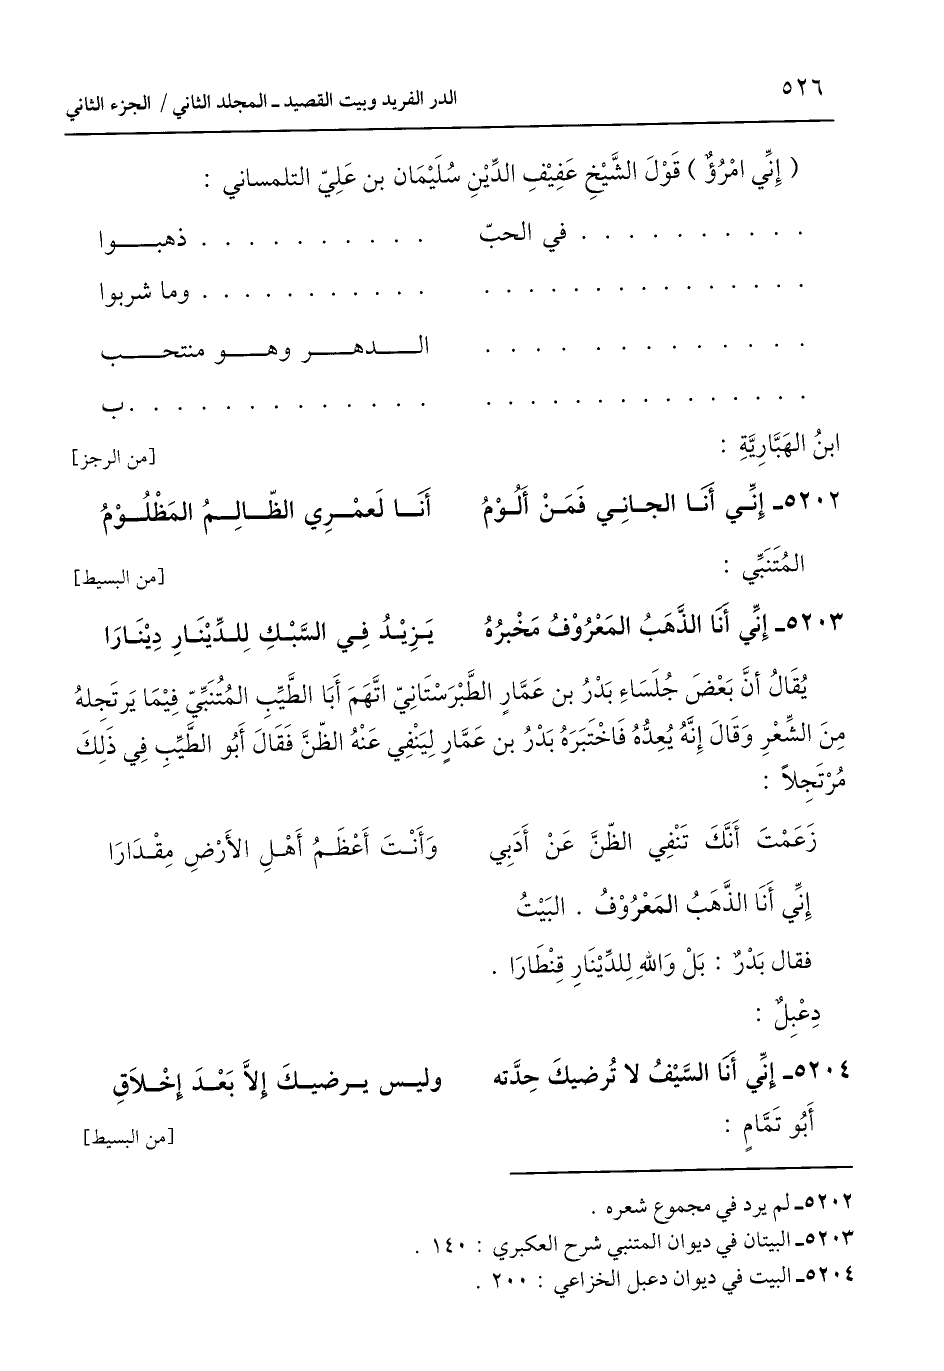 ٥٢٦
الدر الفريد وبيت القصيد ـ المجلد الثاني / الجزء الثاني
( إِنِّي امْرُؤٌ ) قَوْلَ الشَّيْخِ عَفِيْفِ الدِّيْنِ سُلَيْمَان بن عَلِيّ التلمساني :
. . . . . . . . . . في الحبّ . . . . . . . . . . ذهبـــــوا
. . . . . . . . . . . . . . . . . . . . . . . . . وما شربوا
. . . . . . . . . . . . . . الـــــدهـــــر وهـــــو منتحـــــب
. . . . . . . . . . . . . . . . . . . . . . . . . . . ـب
ابنُ الهَبَّارِيَّةِ :
[من الرجز]
٥٢٠٢ـ إِنِّـي أَنَـا الجـانِـي فَمَـنْ أَلُـوْمُ أَنَـــا لَعمْــرِي الظَّـــالِـــمُ المَظْلُـــوْمُ
المُتَنَبِّي :
[من البسيط]
٥٢٠٣ـ إِنِّي أَنَا الذَّهَبُ المَعْرُوْفُ مَخْبرُهُ يَـزِيْـدُ فِـي السَّبْـكِ لِلـدِّيْنَـارِ دِيْنَـارَا
يُقَالُ أنَّ بَعْضَ جُلَسَاءِ بَدْرُ بن عَمَّارِ الطَّبْرَسْتَانِيّ اتَّهَمَ أَبَا الطَّيِّبِ المُتَنَبِّيّ فِيْمَا يَرتَجِلهُ
مِنَ الشِّعْرِ وَقَالَ إِنَّهُ يُعِدُّهُ فَاخْتَبَرَهُ بَدْرُ بن عَمَّارٍ لِيَنْفِي عَنْهُ الظّنَّ فَقَالَ أَبُو الطَّيِّبِ فِي ذَلِكَ
مُرْتَجِلاً :
زَعَمْتَ أَنَّكَ تَنْفِي الظّنَّ عَنْ أَدَبِي وَأَنْـتَ أَعْظَـمُ أَهْـلِ الأَرْضِ مِقْـدَارَا
إِنِّي أَنَا الذَّهَبُ المَعْرُوْفُ . البَيْتُ
فقال بَدْرٌ : بَلْ وَاللهِ لِلدِّيْنَارِ قِنْطَارَا .
دِعْبِلٌ :
٥٢٠٤ـ إِنِّي أَنَا السَّيْفُ لا تُرضيكَ حِدَّته وليـس يـرضيـكَ إِلاَّ بَعْـدَ إِخْـلاَقِ
أَبُو تَمَّامٍ :
[من البسيط]
٥٢٠٢ـ لم يرد في مجموع شعره .
٥٢٠٣ـ البيتان في ديوان المتنبي شرح العكبري : ١٤٠ .
٥٢٠٤ـ البيت في ديوان دعبل الخزاعي : ٢٠٠ .